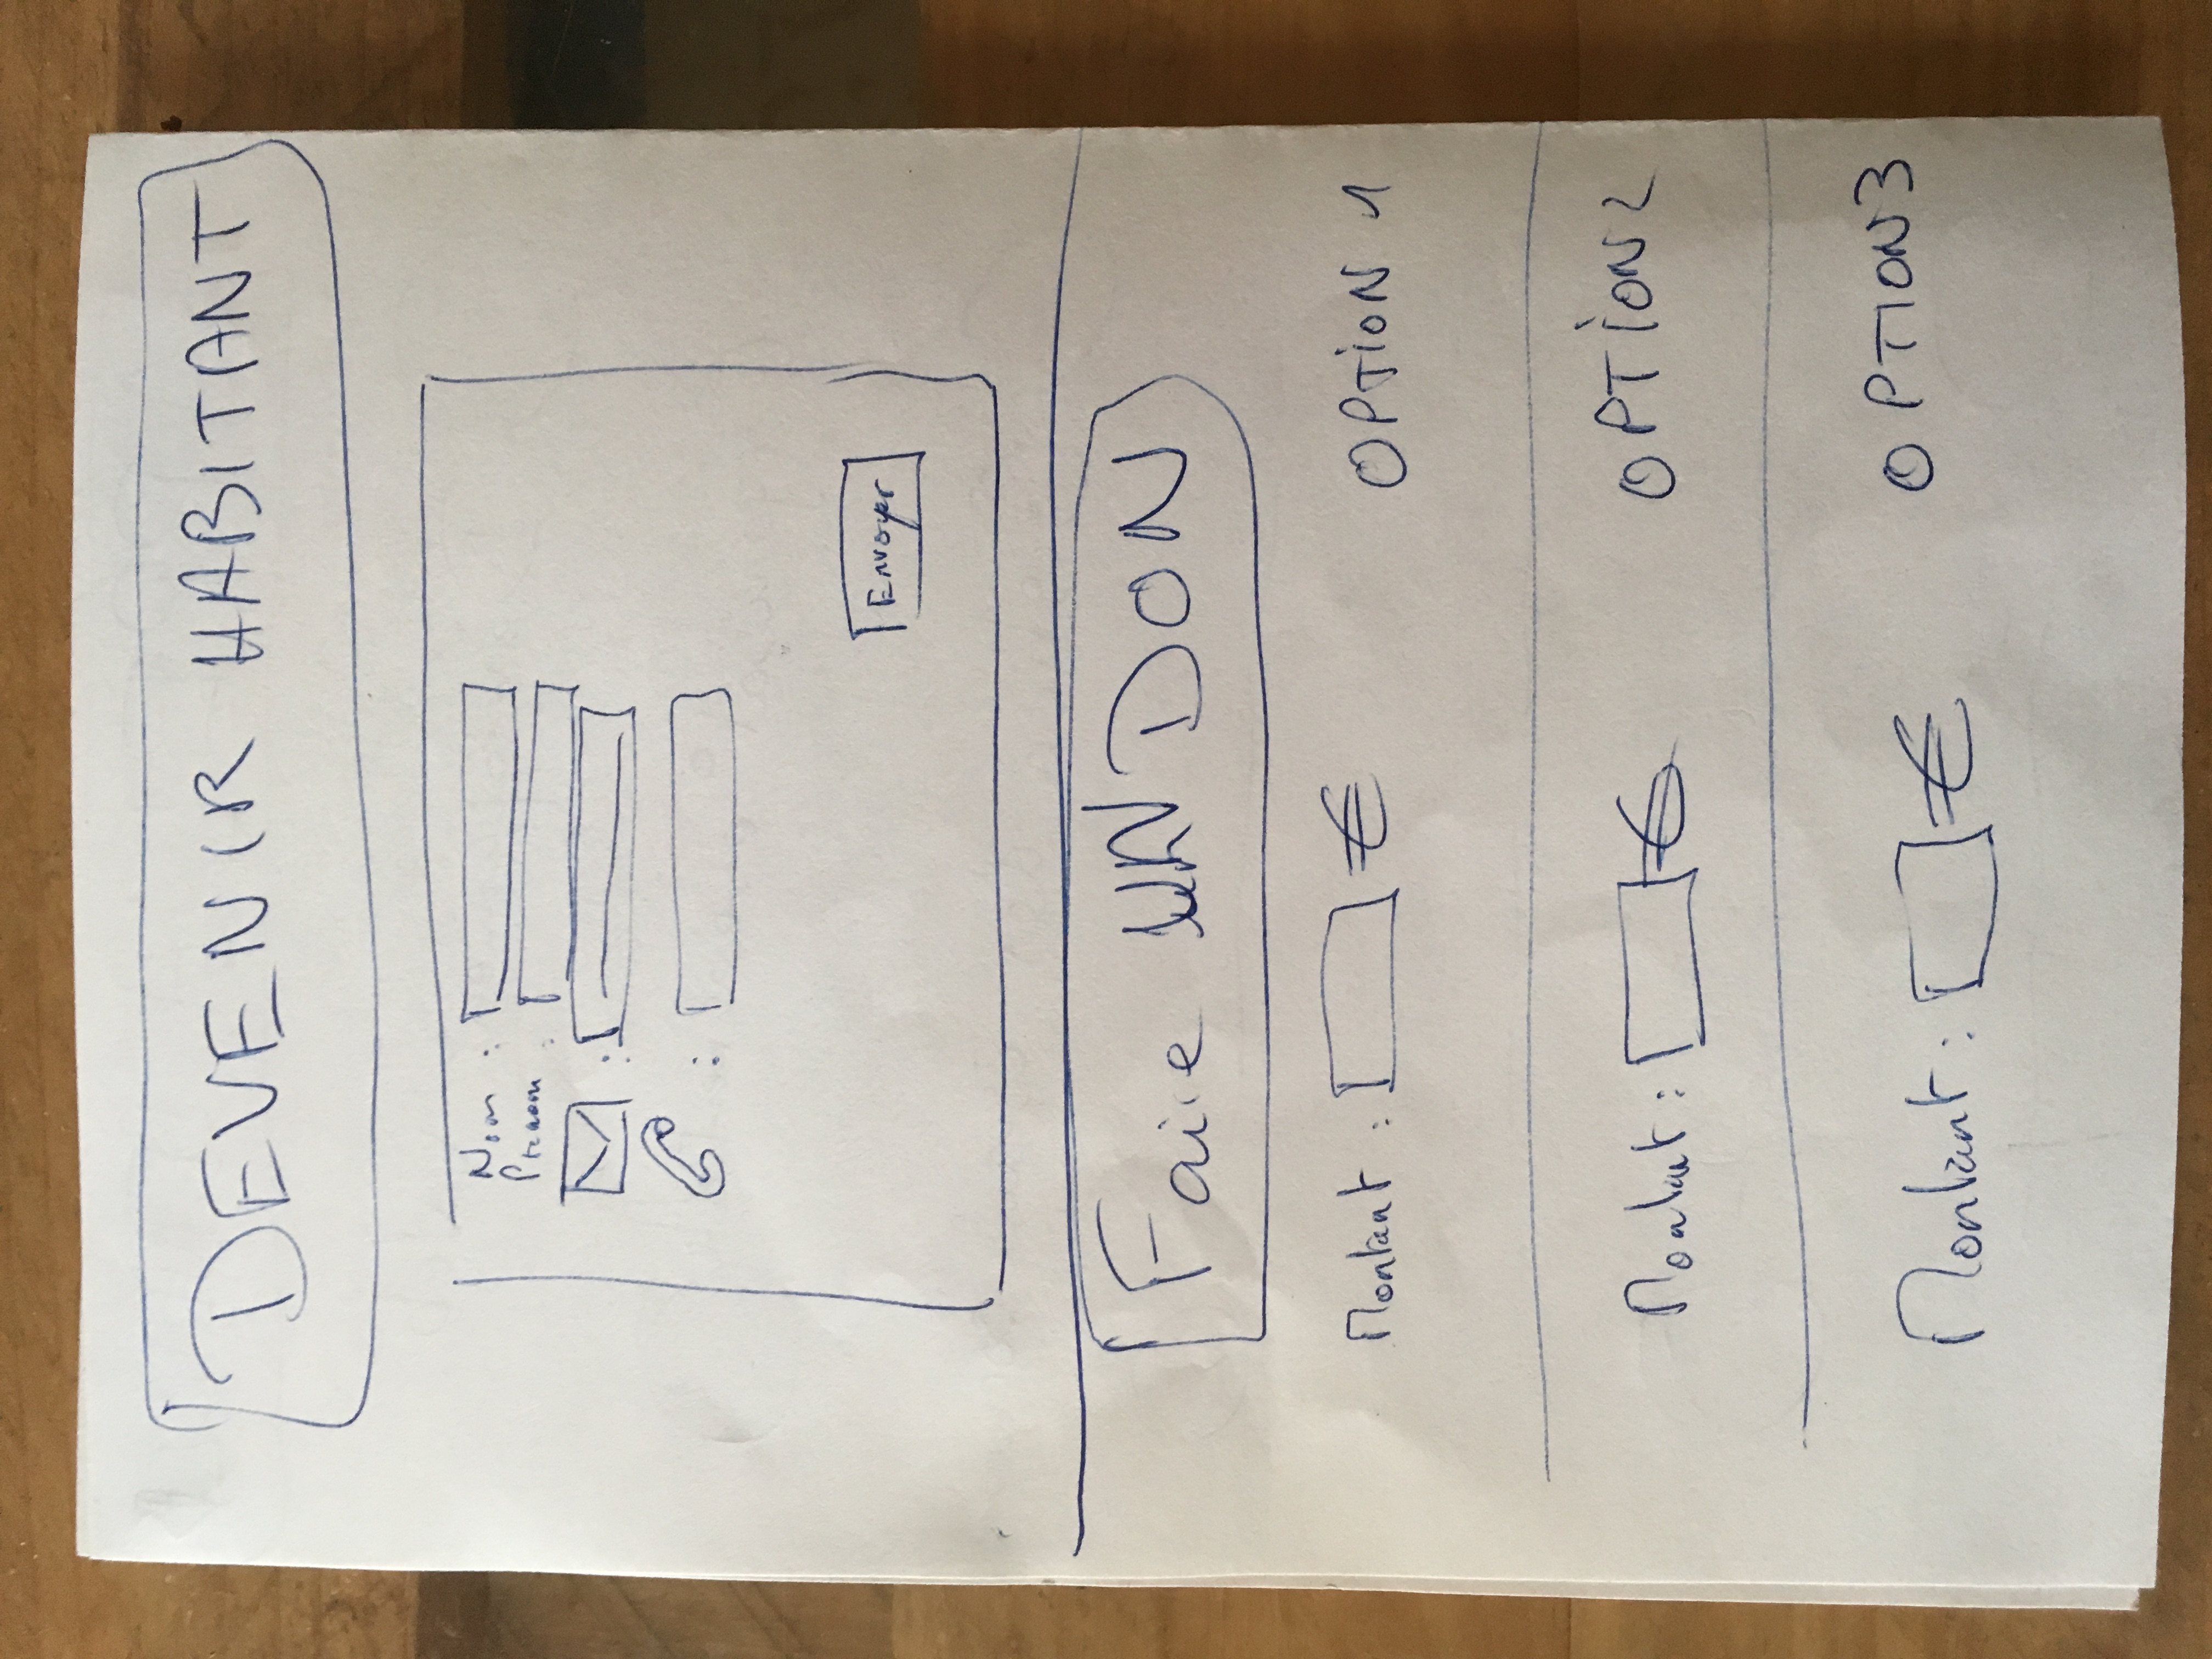 DEVENIR HABITANT
Nom :
Prenom :
:
:
Envoyer
Faire UN DON
Montant : € OPTION 1
Montant : € OPTION 2
Montant : € OPTION 3